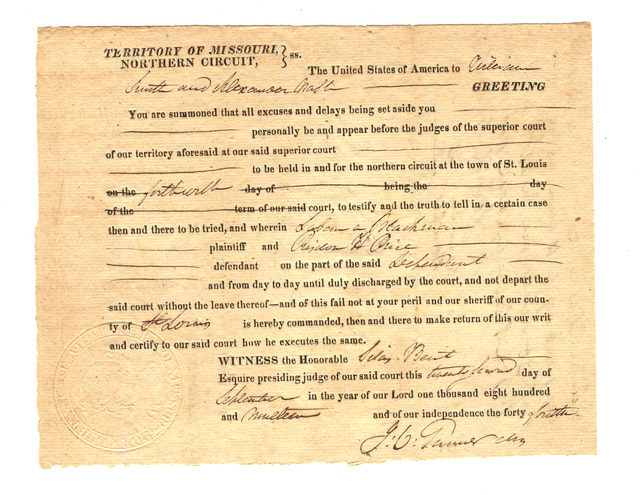 TERRITORY OF MISSOURI, } ss.
NORTHERN CIRCUIT,
The United States of America to William
Smith and Alexander Nash GREETING
You are summoned that all excuses and delays being set aside you
personally be and appear before the judges of the superior court
of our territory aforesaid at our said superior court
to be held in and for the northern circuit at the town of St. Louis
on the forthwith day of being the day
of the term of our said court, to testify and the truth to tell in a certain case
then and there to be tried, and wherein
plaintiff and Risdon H Price
defendant on the part of the said Defendant
and from day to day until duly discharged by the court, and not depart the
said court without the leave thereof—and of this fail not at your peril and our sheriff of our coun-
ty of St Louis is hereby commanded, then and there to make return of this our writ
and certify to our said court how he executes the same.
WITNESS the Honorable Silas Bent
Esquire presiding judge of our said court this twenty second day of
September in the year of our Lord one thousand eight hundred
and nineteen and of our independence the forty fourth